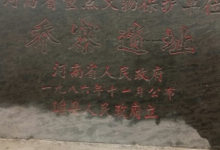 河南省重点文物保护单位
乔寨遗址
河南省人民政府
一九八六年十一月公布
人民政府立